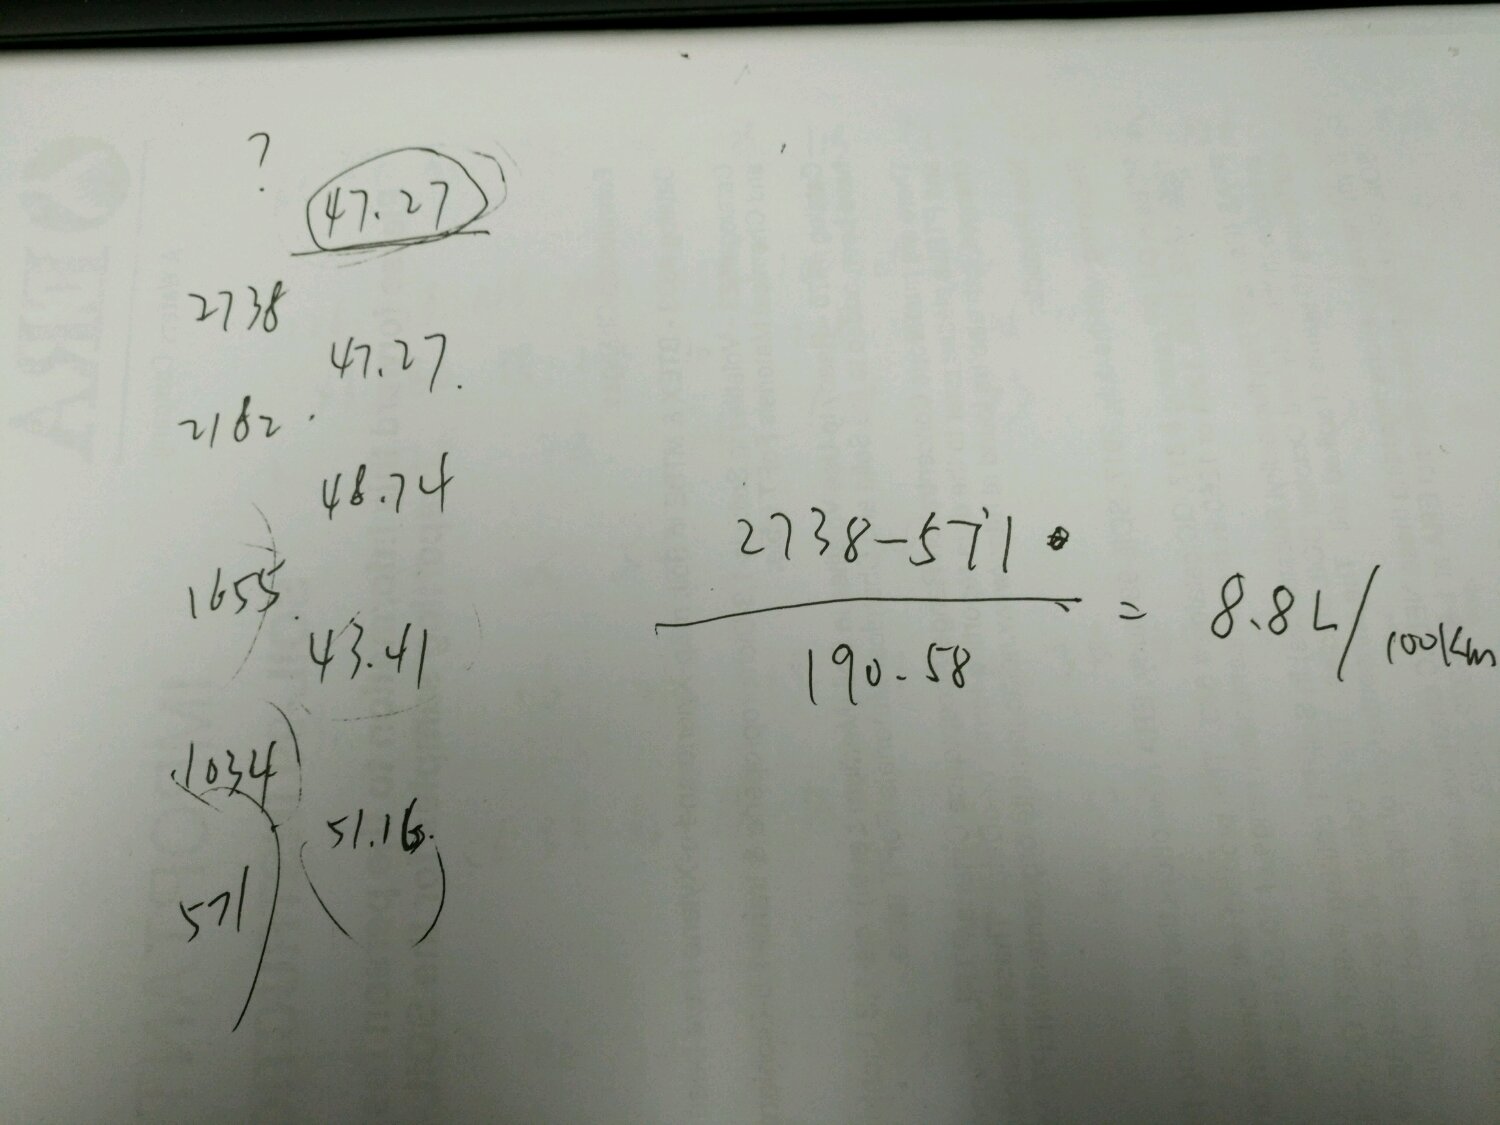 ?
47.27
2738
47.27.
2182
48.74
1655
43.41
1034
51.16
571
2738-571
190.58
= 8.8L/100Km